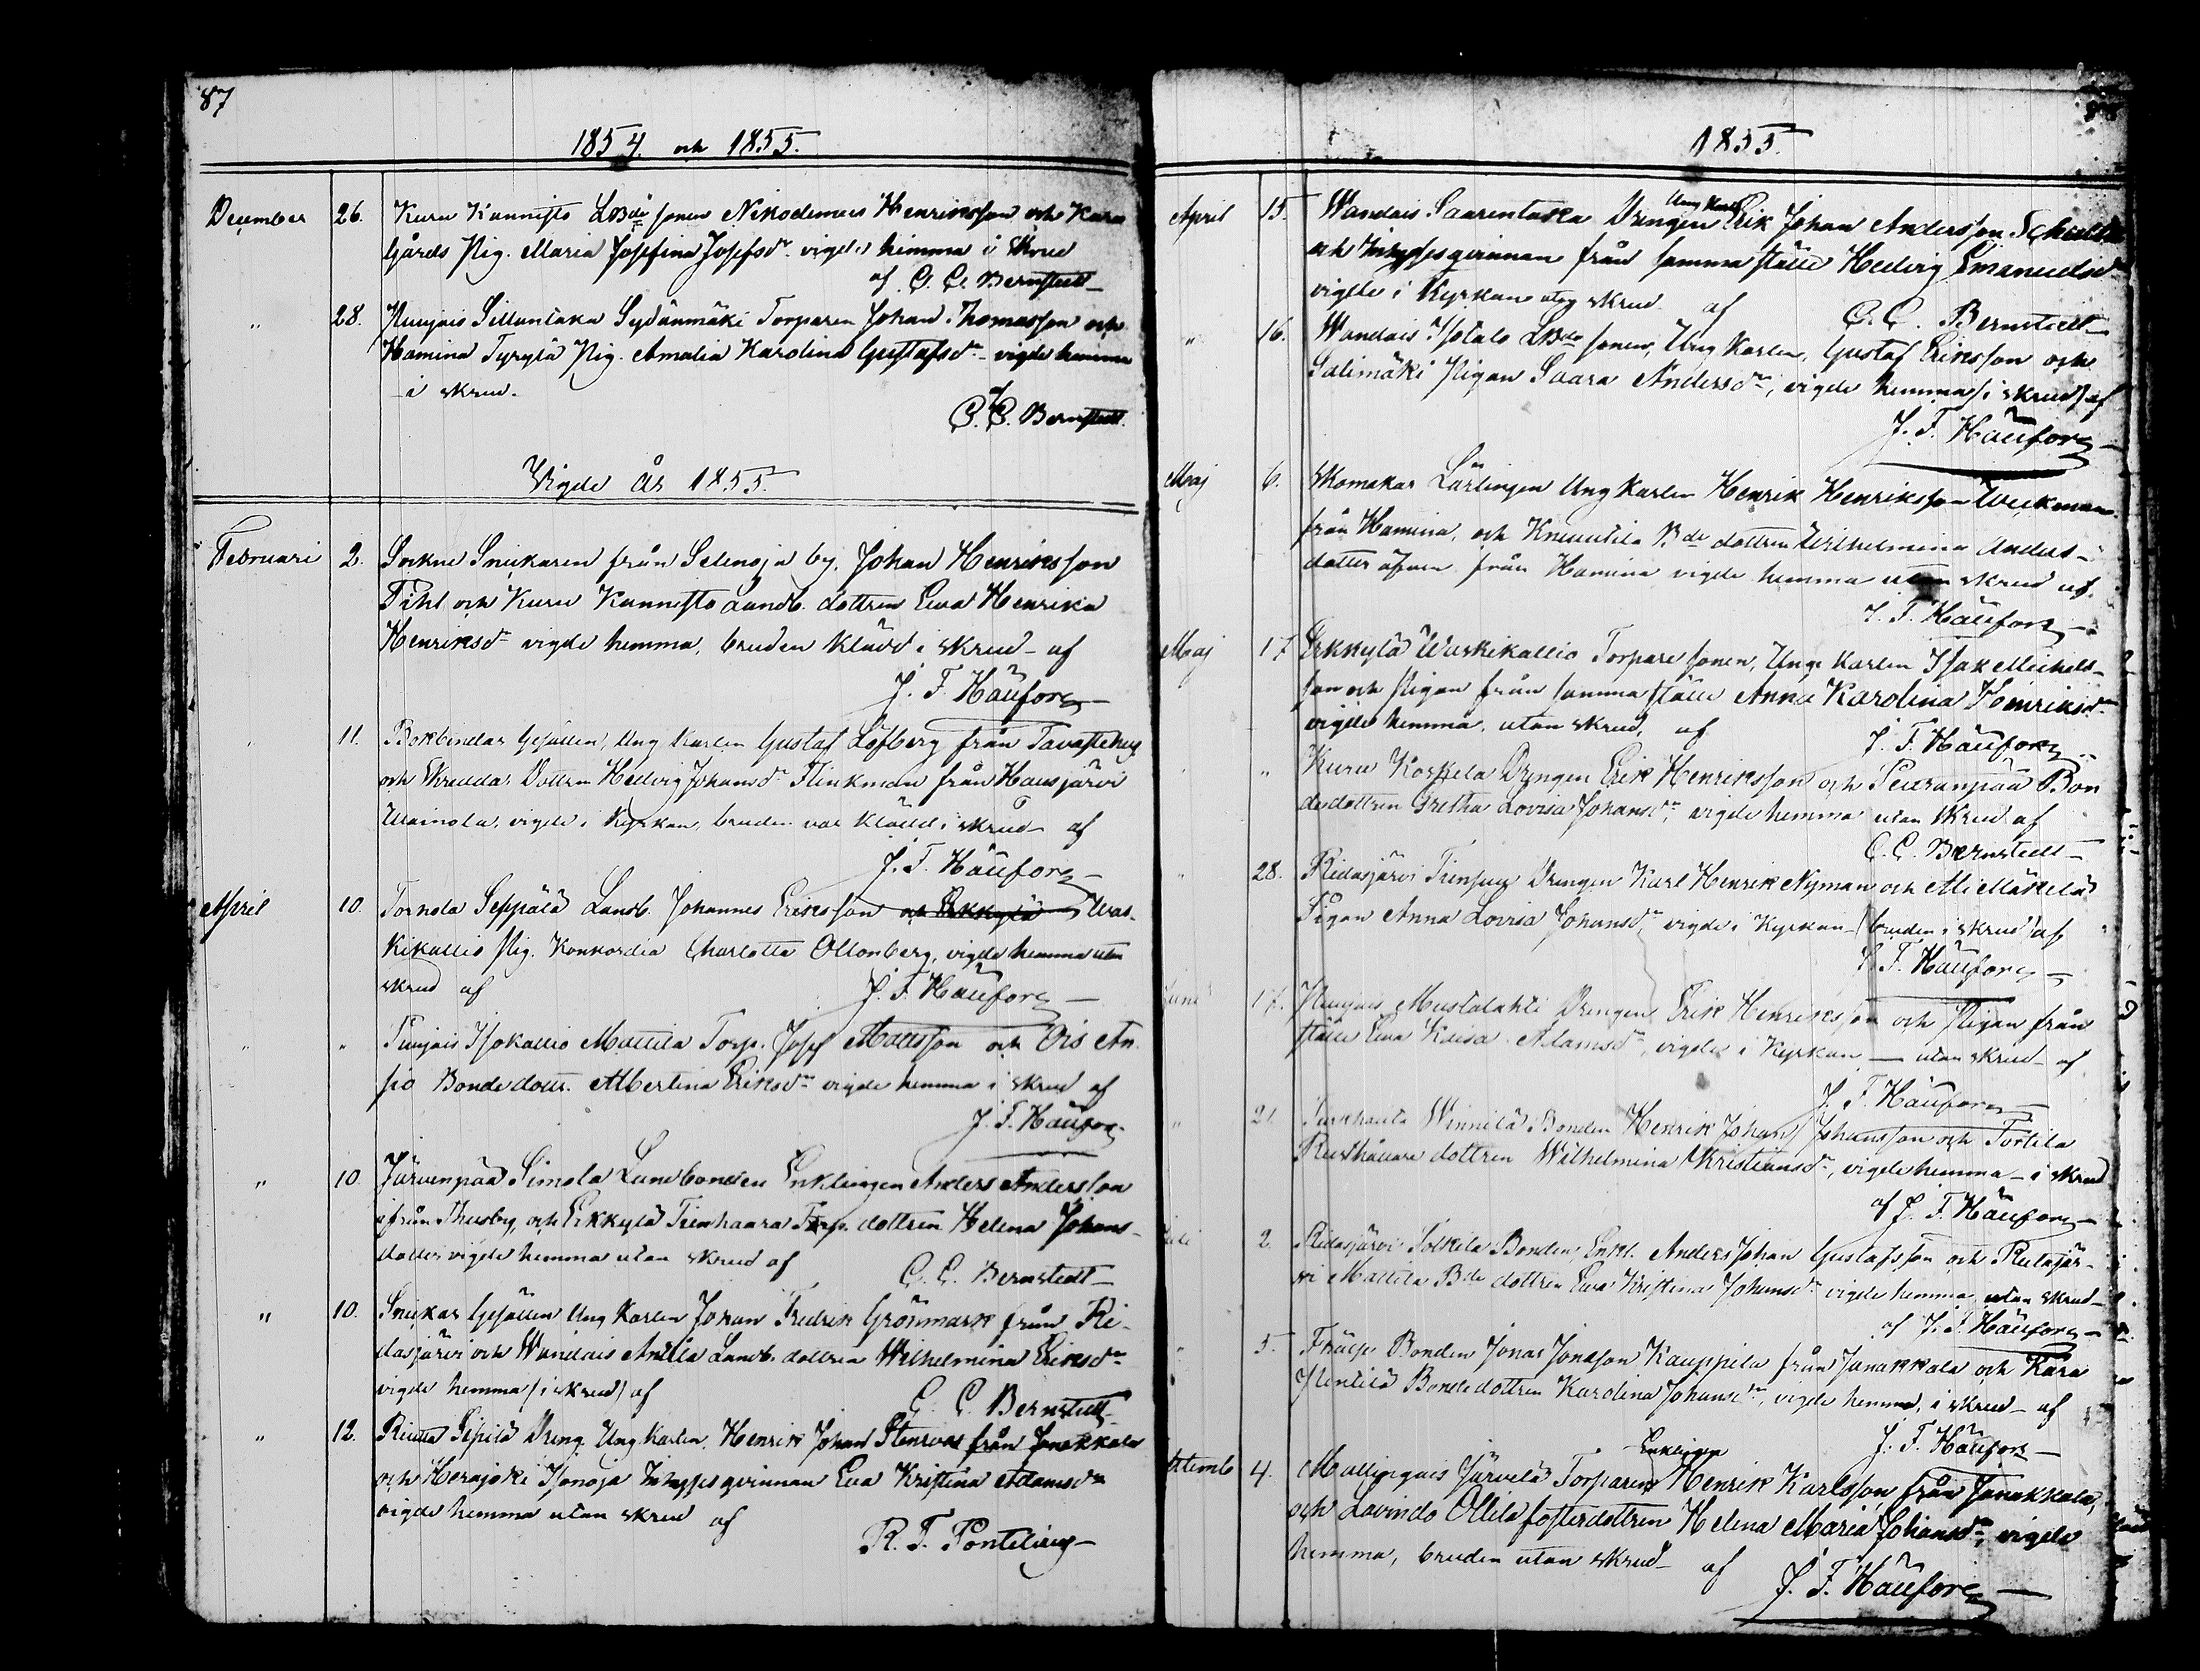 87
1854. och 1855.
December 26. Kuru Kannisto LBde sonen Nikodemus Henriksson och Kara
Gårds Pig. Maria Josefina Josefsdr vigde hemma i skrud
af C. C. Bernstedt
" 28. Nuujais Sillantaka Sydänmäki Torparen Johan Thomasson och
Hamina Tyrylä Pig. Amalia Karolina Gustafsdr vigde hemma
i skrud.
C. C. Bernstedt.
Vigde År 1855.
Februari 2. Sockne Snickaren från Selenoja by, Johan Henriksson
Pihl och Kuru Kannisto Landb. dottren Eva Henrika
Henriksdr vigde hemma, bruden klädd i skrud af
J. F. Häufors
" 11. Bokbindar Gesällen, Ung Karlen Gustaf Löfberg från Tavastehus
och Skreddar Dottren Hedvig Johansdr Flinkman från Hausjärvi
vigde i Kyrkan, bruden var klädd i skrud af
J. F. Häufors
April 10. Torhola Seppälä Landb. Johannes Eriksson och Erkkylä Was-
kikallio Pig. Konkordia Charlotta Ollonberg, vigde hemma utan
skrud af J. F. Häufors
" " Puujais Isokallio Mattila Torp. Josef Mattsson och Ois An-
sio Bonde dottr. Albertina Eriksdr vigde hemma i skrud af
J. F. Häufors
" 10 Järvenpää Simola Landbonden Enklingen Anders Andersson
ifrån Thusby, och Erkkylä Tienhaara Torp. dottren Helena Johans-
dotter vigde hemma utan skrud af
C. C. Bernstedt
" 10. Snickar Gesällen Ung Karlen Johan Fredrik Grönmark från Ri-
dasjärvi och Wandais Anttila Landb. dottren Wilhelmina Eriksdr
vigde hemma (i skrud) af
C. C. Bernstedt
" 12. Riutta Sepilä Dreng. Ung Karlen, Henrik Johan Stenroos från Janakkala
och Herajoki Isonoja Inhysesqvinnan Eva Kristina Adamsdr
vigde hemma utan skrud af
R. F. Ponteling
1855.
April 15. Wandais Saarentaka Drengen Ung Karl Erik Johan Andersson
och Inhysesqvinnan från samma ställe Hedvig Emanuelsdr
vigde i Kyrkan utan skrud af
C. C. Bernstedt
" 16. Wandais Isotalo LBde sonen, Ung Karlen, Gustaf Eriksson och
Salimäki Pigan Saara Andersdr, vigde hemma (i skrud) af
J. F. Häufors
Maj 6. Skomakar Lärlingen Ung Karlen Henrik Henriksson Weckman
från Hamina, och Knuutila Bde dottren Wilhelmina Anders-
dotter äfven från Hamina vigde hemma utan skrud af
J. F. Häufors
Maj 17 Erkkylä Waskikallio Torpare sonen, Unge Karlen Isak Michels-
son och Pigan från samma ställe Anna Karolina Henriksdr
vigde hemma, utan skrud, af J. F. Häufors
" Kuru Koskela Drengen Erik Henriksson och Peuranpää Bon
dedottren Gretha Lovisa Johansdr, vigde hemma utan skrud af
C. C. Bernstedt
" 28. Ridasjärvi Drengen Karl Henrik Nyman och
Pigan Anna Lovisa Johansdr, vigde i Kyrkan (bruden i skrud) af
J. F. Häufors
Juni 17. Mustalahti Drengen Erik Henriksson och Pigan från
ställe Eva Kaisa Adamsdr, vigde i Kyrkan utan skrud af
J. F. Häufors
" 21 Turkhauta Winnilä Bonden Henrik Johan Johansson och Torhola
Rusthållare dottren Wilhelmina Kristiansdr, vigde hemma i skrud
af J. F. Häufors
Juli 2. Ridasjärvi Bonden, Enkl. Anders Johan Gustafsson och Ridasjär-
vi Mattila Bde dottren Eva Kristina Johansdr vigde hemma utan skrud
af J. F. Häufors
" 5. Bonden Jonas Jonsson Kauppila från Janakkala och Kara
Pentilä Bonde dottren Karolina Johansdr, vigde hemma, i skrud af
J. F. Häufors
4. Mallinqais Järvelä Torparen Enklingen Henrik Karlsson från Janakkala,
och Lavindo Ollila fosterdottren Helena Maria Johansdr, vigde
hemma, bruden utan skrud af J. F. Häufors